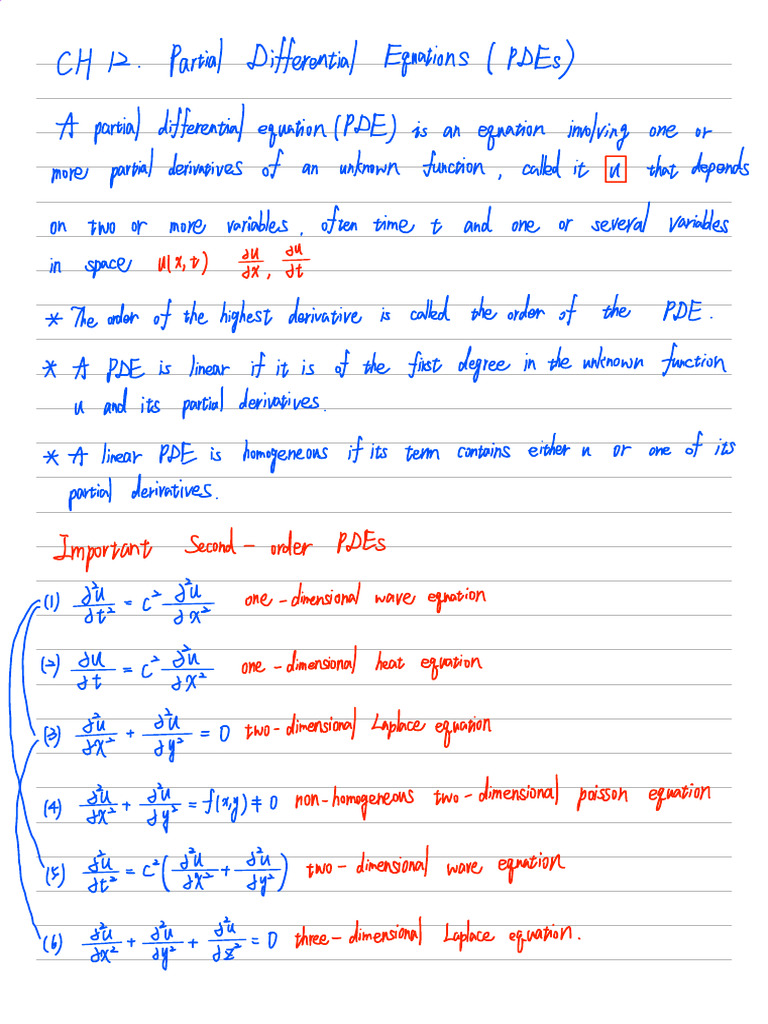 CH 12. Partial Differential Equations (PDEs)
A partial differential equation (PDE) is an equation involving one or
more partial derivatives of an unknown function, called it u that depends
on two or more variables, often time t and one or several variables
in space u(x, t) ∂u/∂x, ∂u/∂t
* The order of the highest derivative is called the order of the PDE.
* A PDE is linear if it is of the first degree in the unknown function
u and its partial derivatives.
* A linear PDE is homogeneous if its term contains either u or one of its
partial derivatives.
Important Second-order PDEs
(1) ∂²u/∂t² = c² ∂²u/∂x² one-dimensional wave equation
(2) ∂u/∂t = c² ∂²u/∂x² one-dimensional heat equation
(3) ∂²u/∂x² + ∂²u/∂y² = 0 two-dimensional Laplace equation
(4) ∂²u/∂x² + ∂²u/∂y² = f(x,y) ≠ 0 non-homogeneous two-dimensional poisson equation
(5) ∂²u/∂t² = c² (∂²u/∂x² + ∂²u/∂y²) two-dimensional wave equation
(6) ∂²u/∂x² + ∂²u/∂y² + ∂²u/∂z² = 0 three-dimensional Laplace equation.